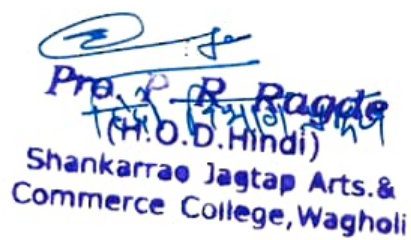 Pro. P. R. Ragde
(H.O.D.Hindi)
Shankarrao Jagtap Arts.&
Commerce College,Wagholi